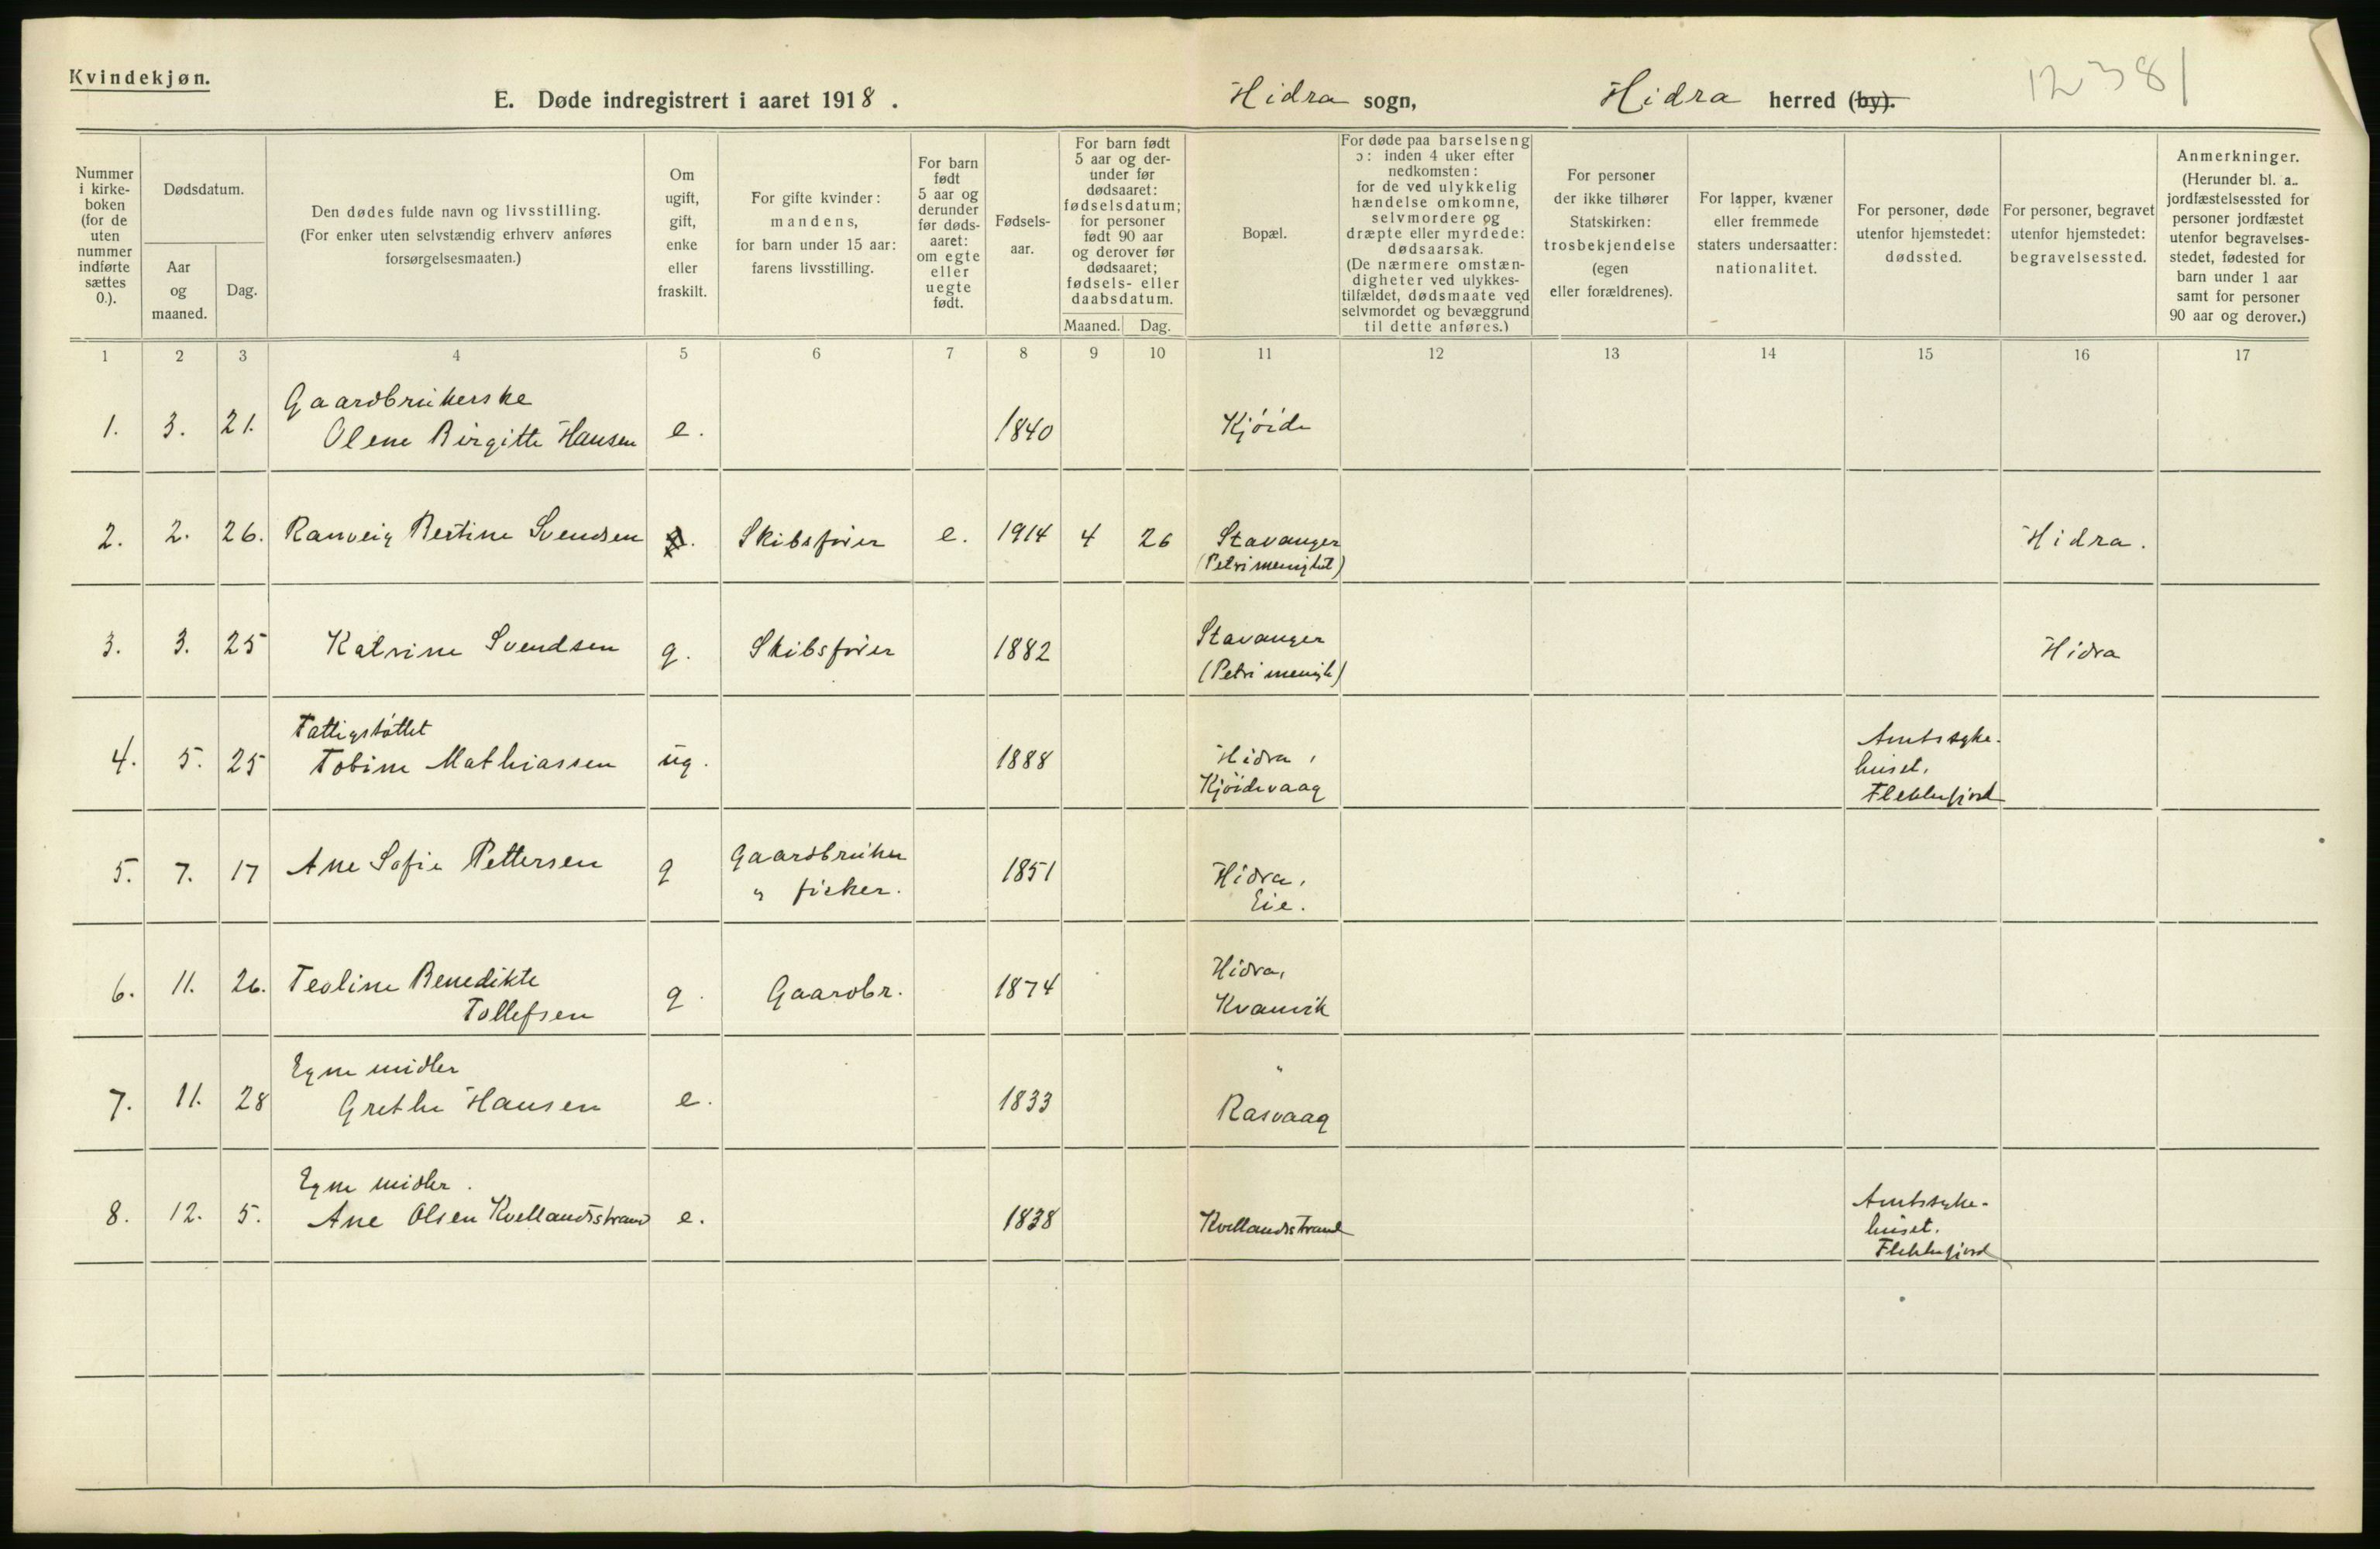 Kvindekjøn.
E. Døde indregistrert i aaret 1918.
Hidra sogn, Hidra herred (by).
12381
Nummer i kirke-boken (for de uten nummer indførte sættes 0.).
Dødsdatum.
Aar og maaned.
Dag.
Den dødes fulde navn og livsstilling.
(For enker uten selvstændig erhverv anføres forsørgelsesmaaten.)
Om ugift, gift, enke eller fraskilt.
For gifte kvinder: mandens, for barn under 15 aar: farens livsstilling.
For barn født 5 aar og derunder før døds-aaret: om egte eller uegte født.
Fødsels-aar.
For barn født 5 aar og der-under før dødsaaret: fødselsdatum; for personer født 90 aar og derover før dødsaaret; fødsels- eller daabsdatum.
Maaned. Dag.
Bopæl.
For døde paa barselseng ɔ: inden 4 uker efter nedkomsten: for de ved ulykkelig hændelse omkomne, selvmordere og dræpte eller myrdede: dødsaarsak. (De nærmere omstæn-digheter ved ulykkes-tilfældet, dødsmaate ved selvmordet og bevæggrund til dette anføres.)
For personer der ikke tilhører Statskirken: trosbekjendelse (egen eller forældrenes).
For lapper, kvæner eller fremmede staters undersaatter: nationalitet.
For personer, døde utenfor hjemstedet: dødssted.
For personer, begravet utenfor hjemstedet: begravelsessted.
Anmerkninger. (Herunder bl. a. jordfæstelsessted for personer jordfæstet utenfor begravelses-stedet, fødested for barn under 1 aar samt for personer 90 aar og derover.)
1 2 3 4 5 6 7 8 9 10 11 12 13 14 15 16 17
Gaardbrukerske
1. 3. 21. Olene Birgitte Hansen e. 1840 Kjöide
2. 2. 26. Ranveig Bertine Svendsen Skibsfører e. 1914 4 26 Stavanger Hidra.
(Petri menighet)
3. 3. 25 Katrine Svendsen g. Skibsfører 1882 Stavanger Hidra
(Petri menigh)
Fattigstöttet
4. 5. 25 Tobine Mathiassen ug. 1888 Hidra, Kjöidevaag Amtssyke-huset. Flekkefjord
5. 7. 17 Ane Sofie Pettersen g Gaardbruker 1851 Hidra,
" fisker. Eie.
6. 11. 26. Teoline Benedikte g. Gaardbr. 1874 Hidra,
Tollefsen Kvanvik
Egne midler "
7. 11. 28 Grethe Hansen e. 1833 Rasvaag
Egne midler.
8. 12. 5. Ane Olsen Kvellandsstrand e. 1838 Kvellandsstrand Amtssyke-huset. Flekkefjord